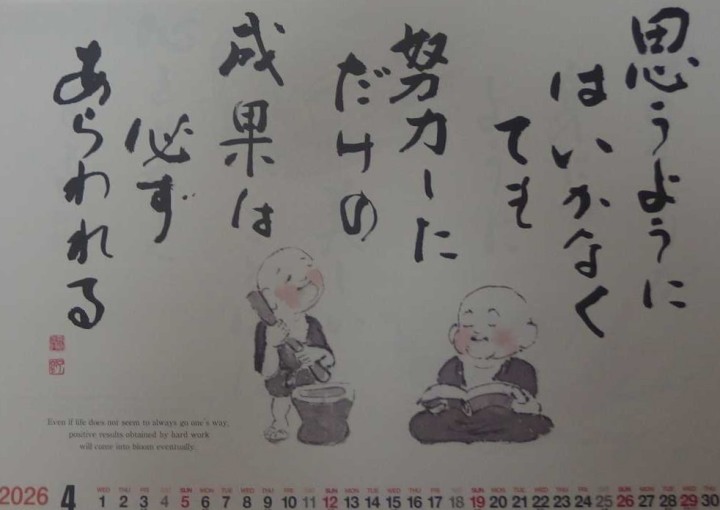 思うように
はいかなく
ても
努力した
だけの
成果は
必ず
あらわれる
Even if life does not seem to always go one's way,
positive results obtained by hard work
will come into bloom eventually.
2026 4
WED THU FRI SAT SUN MON TUE WED THU FRI SAT SUN MON TUE WED THU FRI SAT SUN MON TUE WED THU FRI SAT SUN MON TUE WED THU
1 2 3 4 5 6 7 8 9 10 11 12 13 14 15 16 17 18 19 20 21 22 23 24 25 26 27 28 29 30